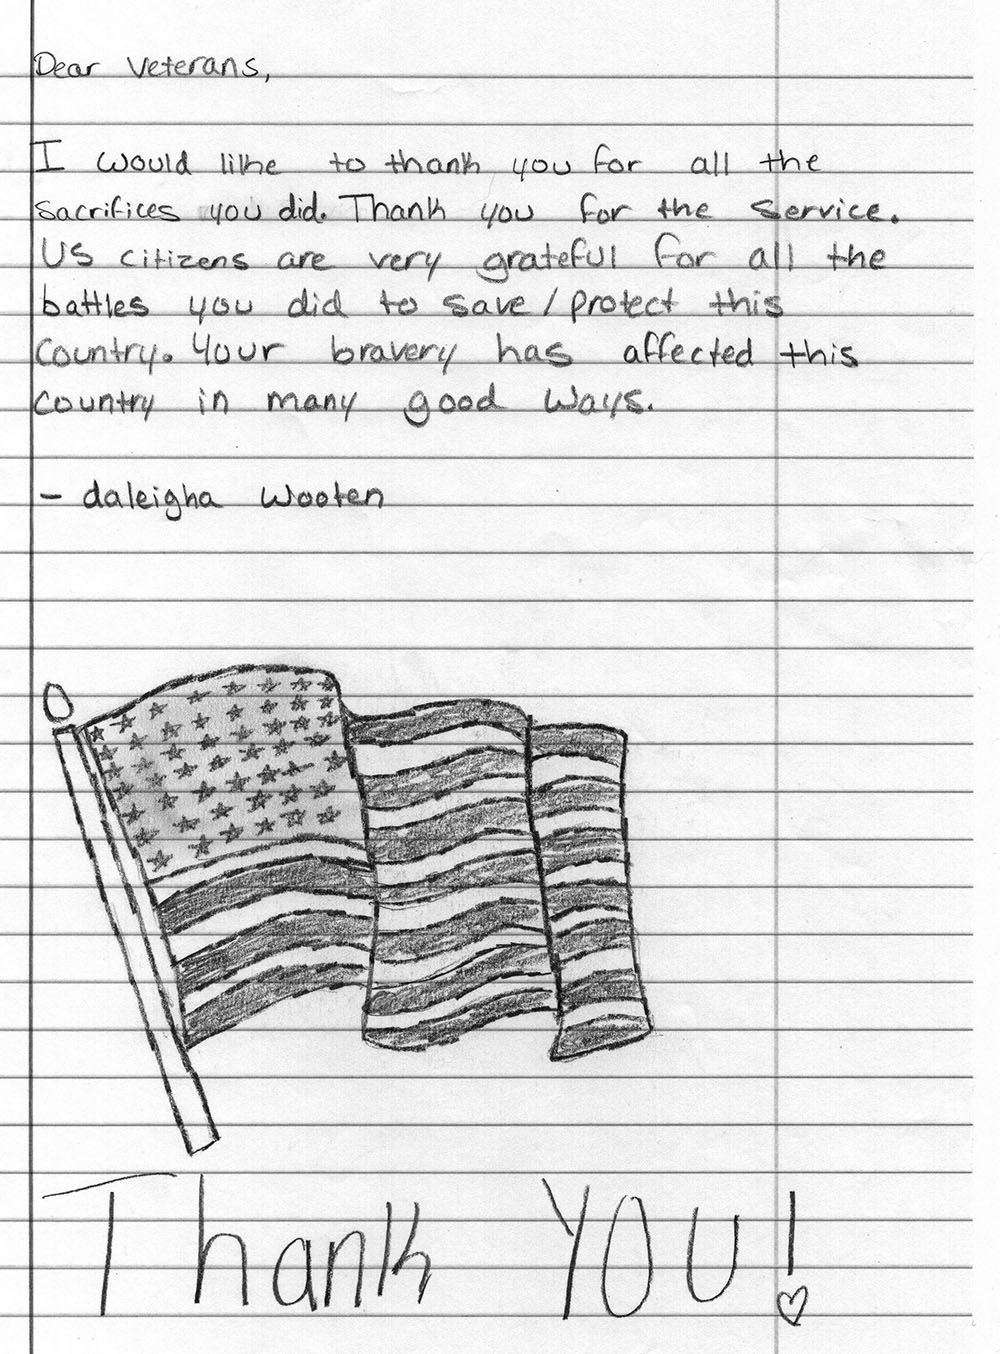 Dear Veterans,
I would like to thank you for all the
sacrifices you did. Thank you for the service.
US citizens are very grateful for all the
battles you did to save/protect this
country. Your bravery has affected this
country in many good ways.
- daleigha Wooten
Thank YOU!